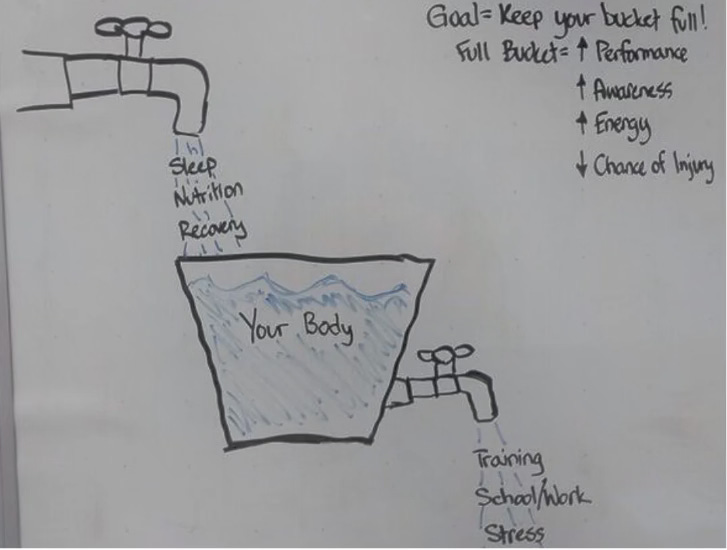 Goal = Keep your bucket full!
Full Bucket = ↑ Performance
↑ Awareness
↑ Energy
↓ Chance of Injury
Sleep
Nutrition
Recovery
Your Body
Training
School/Work
Stress